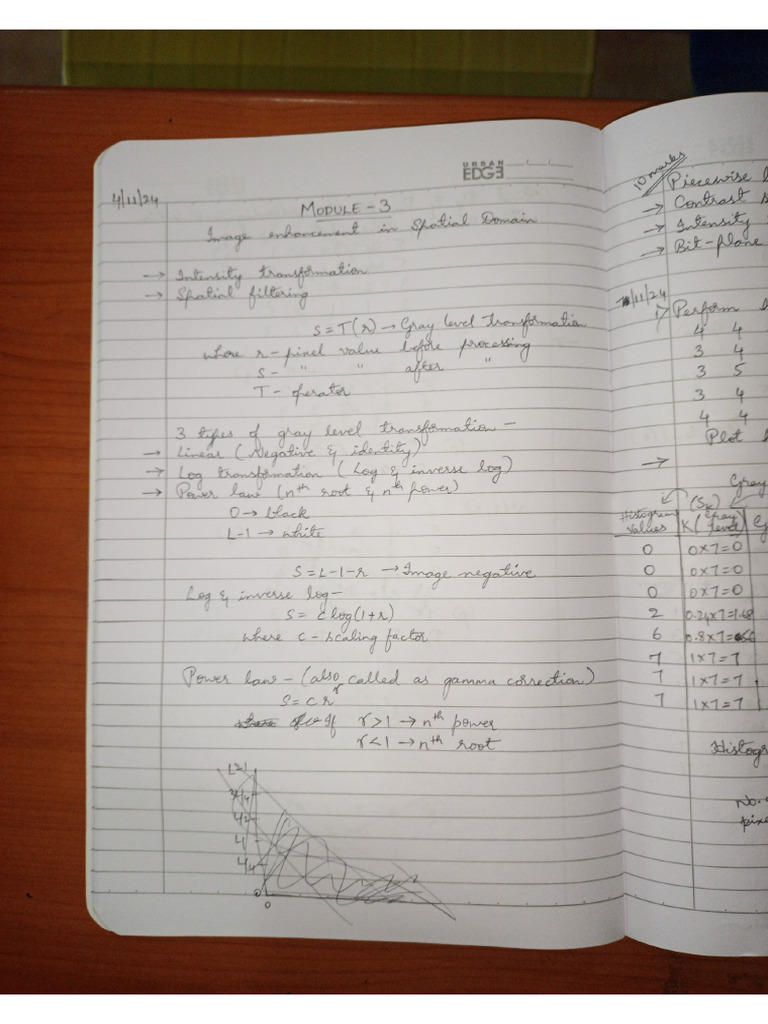 URBAN
EDGE
4/11/24
MODULE - 3
Image enhancement in Spatial Domain
→ Intensity transformation
→ Spatial filtering
S = T(r) → Gray level transformation
where r - pixel value before processing
S - " " after "
T - operator
3 types of gray level transformation -
→ Linear (Negative & identity)
→ Log transformation (Log & inverse log)
→ Power law (nth root & nth power)
0 → black
L-1 → white
S = L-1-r → Image negative
Log & inverse log -
S = c log(1+r)
where c - scaling factor
Power law - (also called as gamma correction)
S = c r^γ
If γ > 1 → nth power
γ < 1 → nth root
0
0
10 marks
Piecewise
→ Contrast
→ Intensity
→ Bit-plane
/11/24
1) Perform
4 4
3 4
3 5
3 4
4 4
Plot
→
Gray
Histogram Values (Sk) K (Gray level)
0 0×7=0
0 0×7=0
0 0×7=0
2 0.24×7=1.68
6 0.8×7=
7 1×7=7
7 1×7=7
7 1×7=7
Histogr
No.
pixe